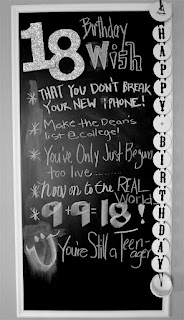 18 Birthday
Wish
* THAT YOU DON'T BREAK
YOUR NEW IPHONE!
* Make the Dean's
list @ college!
* You've Only Just Begun
too live........
* Now on to the REAL
World
* 9+9=18!
You're Still a Teen-
ager
HAPPY BIRTHDAY!